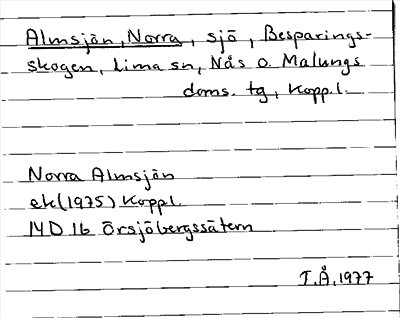 Almsjön, Norra, sjö, Besparings-
skogen, Lima sn, Nås o. Malungs
doms. tg, Kopp.l.
Norra Almsjön
ek(1975) Koppl.
14D 1b Örsjöbergssätern
T.Å. 1977